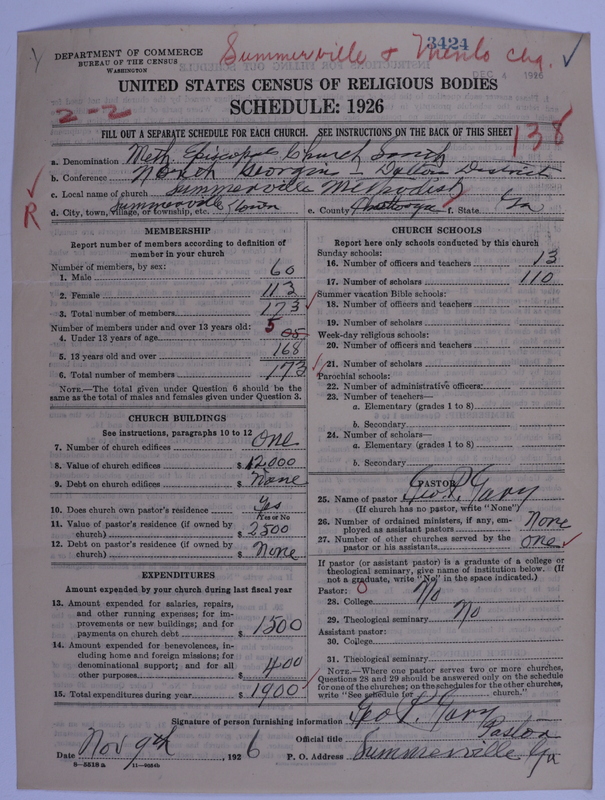 DEPARTMENT OF COMMERCE
BUREAU OF THE CENSUS
WASHINGTON
Summerville & Menlo chg.
3424
DEC 4 1926
UNITED STATES CENSUS OF RELIGIOUS BODIES
SCHEDULE: 1926
2-2
138
FILL OUT A SEPARATE SCHEDULE FOR EACH CHURCH. SEE INSTRUCTIONS ON THE BACK OF THIS SHEET
a. Denomination Meth. Episcopal Church South
b. Conference North Georgia - Dalton District
c. Local name of church Summerville Methodist
d. City, town, village, or township, etc. Summerville town e. County Chattooga f. State Ga
R
MEMBERSHIP
Report number of members according to definition of
member in your church
Number of members, by sex:
1. Male 60
2. Female 113
3. Total number of members 173
Number of members under and over 13 years old:
4. Under 13 years of age 5 05
5. 13 years old and over 168
6. Total number of members 173
NOTE.—The total given under Question 6 should be
same as the total of males and females given under Question 3.
CHURCH BUILDINGS
See instructions, paragraphs 10 to 12
7. Number of church edifices One
8. Value of church edifices $ 12000
9. Debt on church edifices $ None
10. Does church own pastor's residence Yes
Yes or No
11. Value of pastor's residence (if owned by
church) $ 2500
12. Debt on pastor's residence (if owned by
church) $ None
EXPENDITURES
Amount expended by your church during last fiscal year
13. Amount expended for salaries, repairs,
and other running expenses; for im-
provements or new buildings; and for
payments on church debt $ 1500
14. Amount expended for benevolences, in-
cluding home and foreign missions; for
denominational support; and for all
other purposes $ 400
15. Total expenditures during year $ 1900
CHURCH SCHOOLS
Report here only schools conducted by this church
Sunday schools:
16. Number of officers and teachers 13
17. Number of scholars 110
Summer vacation Bible schools:
18. Number of officers and teachers
19. Number of scholars
Week-day religious schools:
20. Number of officers and teachers
21. Number of scholars
Parochial schools:
22. Number of administrative officers:
23. Number of teachers—
a. Elementary (grades 1 to 8)
b. Secondary
24. Number of scholars—
a. Elementary (grades 1 to 8)
b. Secondary
PASTOR
25. Name of pastor Geo. L. Gary
(If church has no pastor, write "None")
26. Number of ordained ministers, if any, em-
ployed as assistant pastors None
27. Number of other churches served by the
pastor or his assistants One
If pastor (or assistant pastor) is a graduate of a college or
theological seminary, give name of institution below. (If
not a graduate, write "No" in the space indicated.)
Pastor:
28. College No
29. Theological seminary No
Assistant pastor:
30. College
31. Theological seminary
NOTE.—Where one pastor serves two or more churches,
Questions 28 and 29 should be answered only on the schedule
for one of the churches; on the schedules for the other churches,
write "See schedule for church."
Signature of person furnishing information Geo L. Gary
Official title Pastor
Date Nov 9th, 1926 P. O. Address Summerville Ga
8-5518a